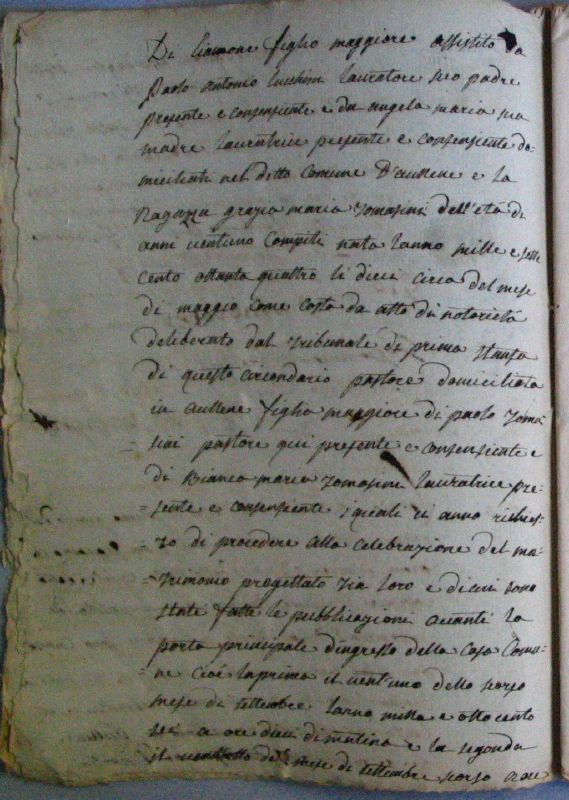 Di Liamone figlio maggiore assistito da
Paolo Antonio Lucchini lauratore suo padre
presente e consensiente e da angela maria sua
madre lauratrice presente e consensiente do-
miciliati nel detto Comune D'aullene e la
Ragazza grazia maria Tomasini dell'età di
anni ventuno Compiti nata lanno mille e sette
cento ottanta quattro li dieci circa del mese
di maggio come costa da atto di notorietà
deliberato dal Tribunale di prima stanza
di questo circondario pastore domiciliata
in aullene figlia maggiore di paolo Toma-
sini pastore qui presente e consensiente e
di Bianca maria Tomasini lauratrice pre-
= sente e consensiente i quali ci anno richies-
= to di procedere alla celebrazione del ma-
= trimonio progettato tra loro e di cui sono
state fatte le pubblicazioni avanti la
porta principale d'ingresso della casa Comu-
ne cioè la prima il vent'uno dello scorso
mese di settembre lanno mille e otto cento
sei a ore dieci di matina e la segonda
il ventotto del mese di settembre scorso a ore